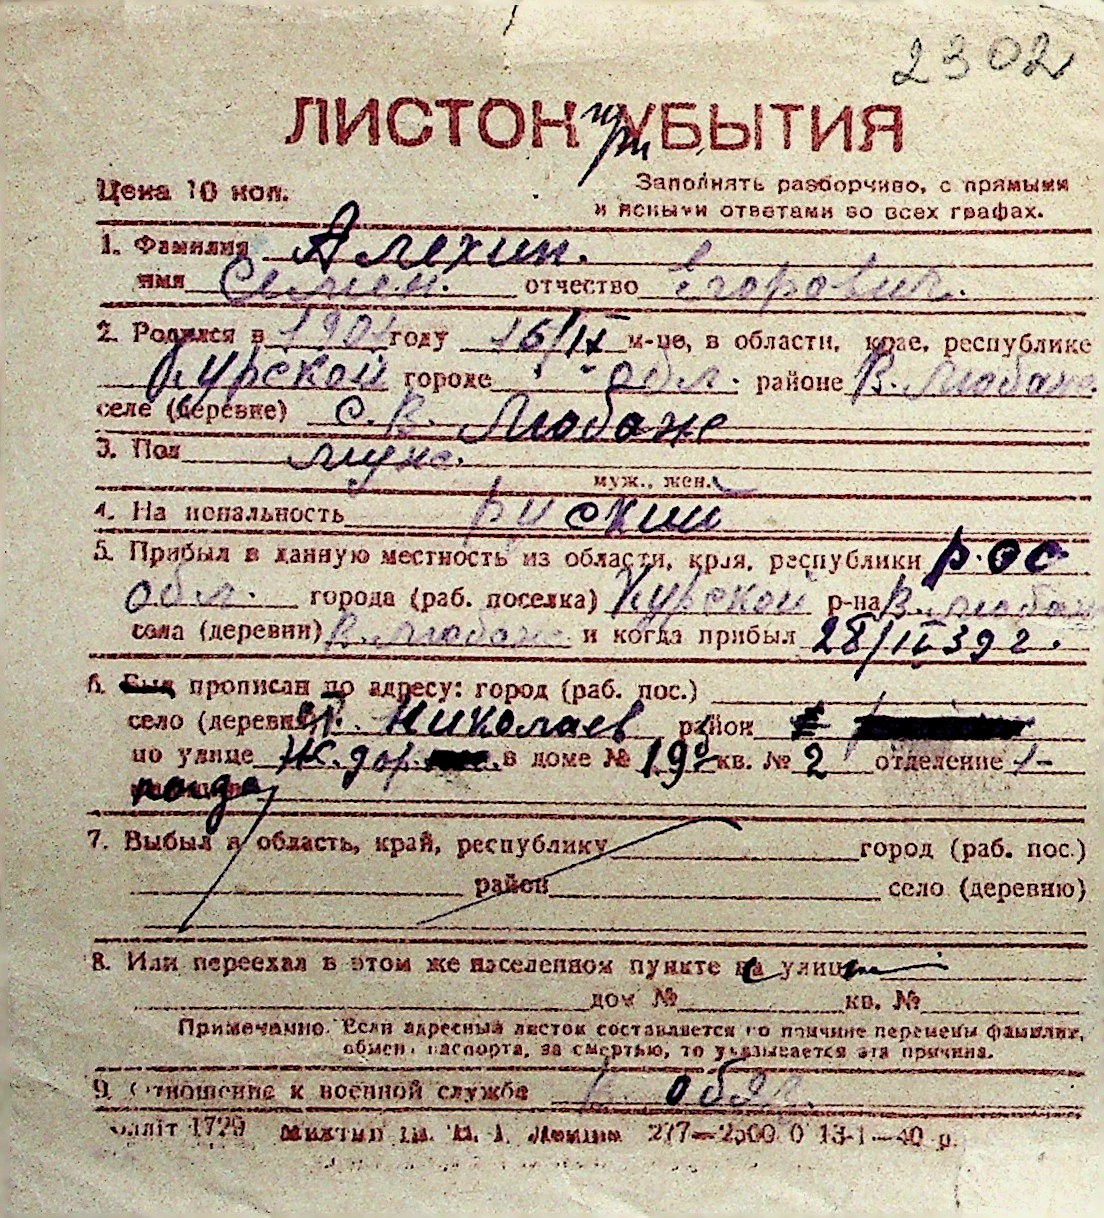 2302
ЛИСТОК при УБЫТИЯ
Цена 10 коп.
Заполнять разборчиво, с прямыми
и ясными ответами во всех графах.
1. Фамилия Алехин.
имя Семен. отчество Егорович.
2. Родился в 1901 году 15/IX м-це, в области, крае, республике
Курской городе обл. районе В. Любаже
селе (деревне) с. В. Любаже
3. Пол муж.
муж., жен.
4. Национальность руский
5. Прибыл в данную местность из области, края, республики
обл. города (раб. поселка) Курской р-на В. Любаж
села (деревни) В. Любаже и когда прибыл 28/II 39 г.
6. Был прописан по адресу: город (раб. пос.)
село (деревня) Николаев район
по улице Ж. дор. в доме № 19 кв. № 2 отделение 1-
милиции
7. Выбыл в область, край, республику город (раб. пос.)
район село (деревню)
8. Или переехал в этом же населенном пункте на улицу
дом № кв. №
Примечание. Если адресный листок составляется по причине перемены фамилии,
обмена паспорта, за смертью, то указывается эта причина.
9. Отношение к военной службе в. обяз.
лліт 1729 277—2500 0 13-1—40 р.